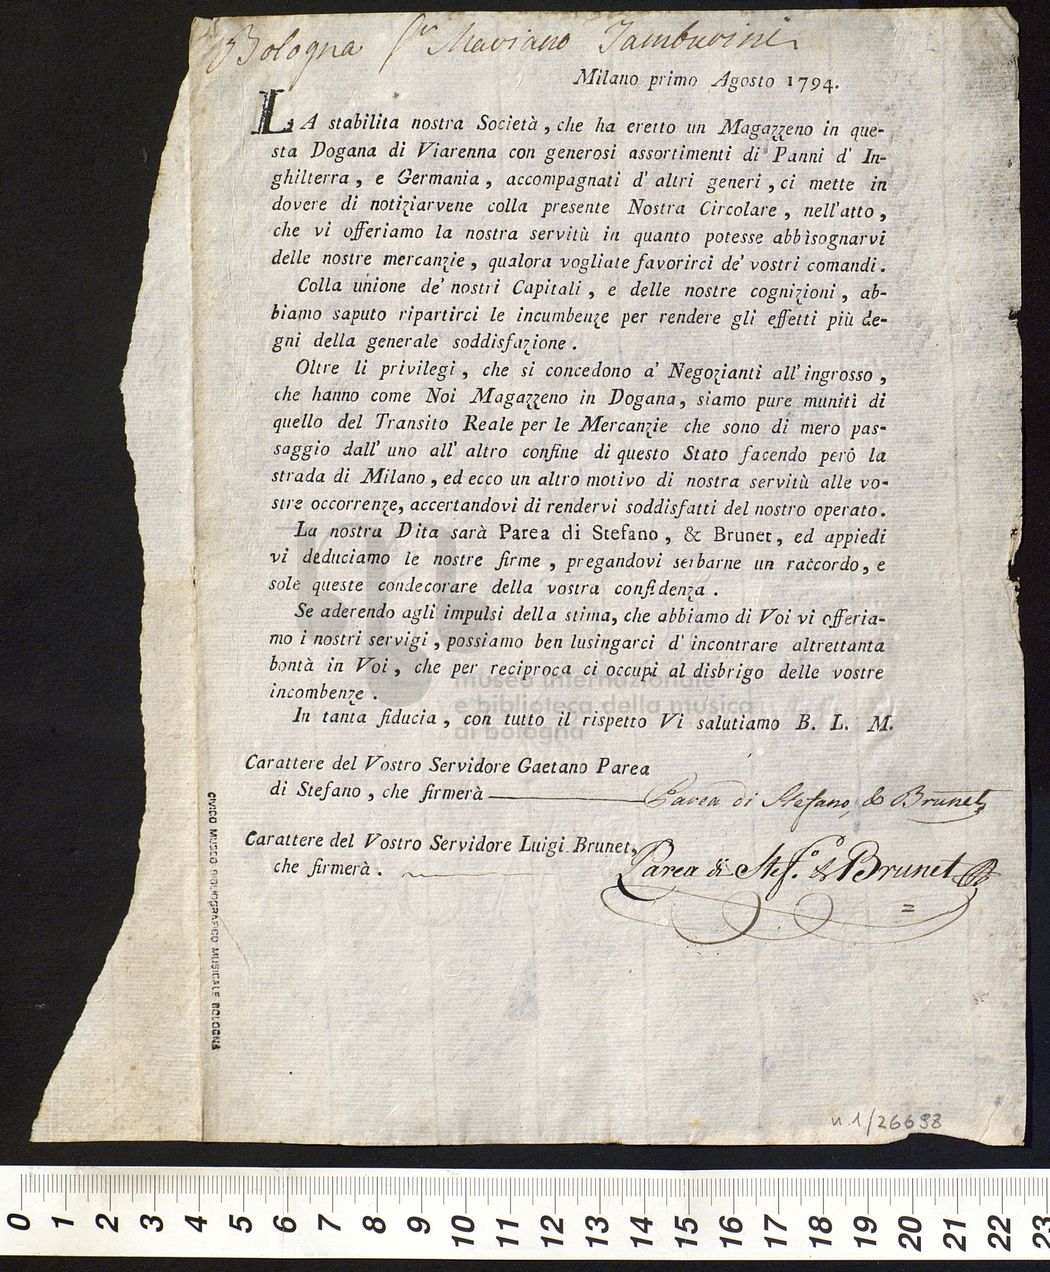 Bologna Sr Mariano Tamburini
Milano primo Agosto 1794.
LA stabilita nostra Società, che ha eretto un Magazzeno in que-
sta Dogana di Viarenna con generosi assortimenti di Panni d' In-
ghilterra, e Germania, accompagnati d' altri generi, ci mette in
dovere di notiziarvene colla presente Nostra Circolare, nell'atto,
che vi offeriamo la nostra servitù in quanto potesse abbisognarvi
delle nostre mercanzie, qualora vogliate favorirci de' vostri comandi.
Colla unione de' nostri Capitali, e delle nostre cognizioni, ab-
biamo saputo ripartirci le incumbenze per rendere gli effetti più de-
gni della generale soddisfazione.
Oltre li privilegi, che si concedono a' Negozianti all'ingrosso,
che hanno come Noi Magazzeno in Dogana, siamo pure muniti di
quello del Transito Reale per le Mercanzie che sono di mero pas-
saggio dall' uno all' altro confine di questo Stato facendo però la
strada di Milano, ed ecco un altro motivo di nostra servitù alle vo-
stre occorrenze, accertandovi di rendervi soddisfatti del nostro operato.
La nostra Dita sarà Parea di Stefano, & Brunet, ed appiedi
vi deduciamo le nostre firme, pregandovi serbarne un raccordo, e
sole queste condecorare della vostra confidenza.
Se aderendo agli impulsi della stima, che abbiamo di Voi vi offeria-
mo i nostri servigi, possiamo ben lusingarci d' incontrare altrettanta
bontà in Voi, che per reciproca ci occupi al disbrigo delle vostre
incombenze.
In tanta fiducia, con tutto il rispetto Vi salutiamo B. L. M.
museo internazionale
e biblioteca della musica
di bologna
Carattere del Vostro Servidore Gaetano Parea
di Stefano, che firmerà Parea di Stefano, & Brunet
Carattere del Vostro Servidore Luigi Brunet,
che firmerà. Parea di Stef.o & Brunet
CIVICO MUSEO BIBLIOGRAFICO MUSICALE BOLOGNA
n.1/26698
0 1 2 3 4 5 6 7 8 9 10 11 12 13 14 15 16 17 18 19 20 21 22 23